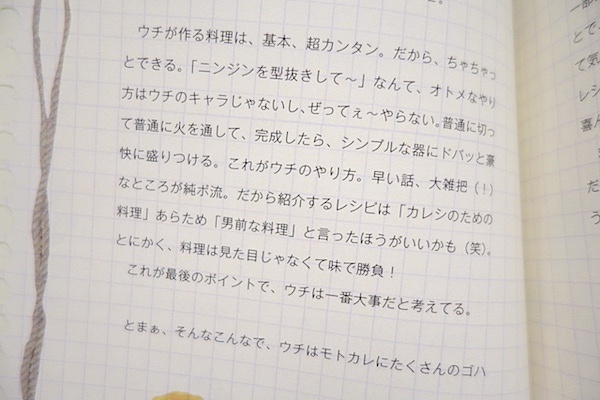 ウチが作る料理は、基本、超カンタン。だから、ちゃちゃっ
とできる。「ニンジンを型抜きして〜」なんて、オトメなやり
方はウチのキャラじゃないし、ぜってぇ〜やらない。普通に切っ
て普通に火を通して、完成したら、シンプルな器にドバッと豪
快に盛りつける。これがウチのやり方。早い話、大雑把（！）
なところが純ボ流。だから紹介するレシピは「カレシのための
料理」あらため「男前な料理」と言ったほうがいいかも（笑）。
とにかく、料理は見た目じゃなくて味で勝負！
これが最後のポイントで、ウチは一番大事だと考えてる。
とまぁ、そんなこんなで、ウチはモトカレにたくさんのゴハ
とで
て気
レシ
喜ん
だ
う